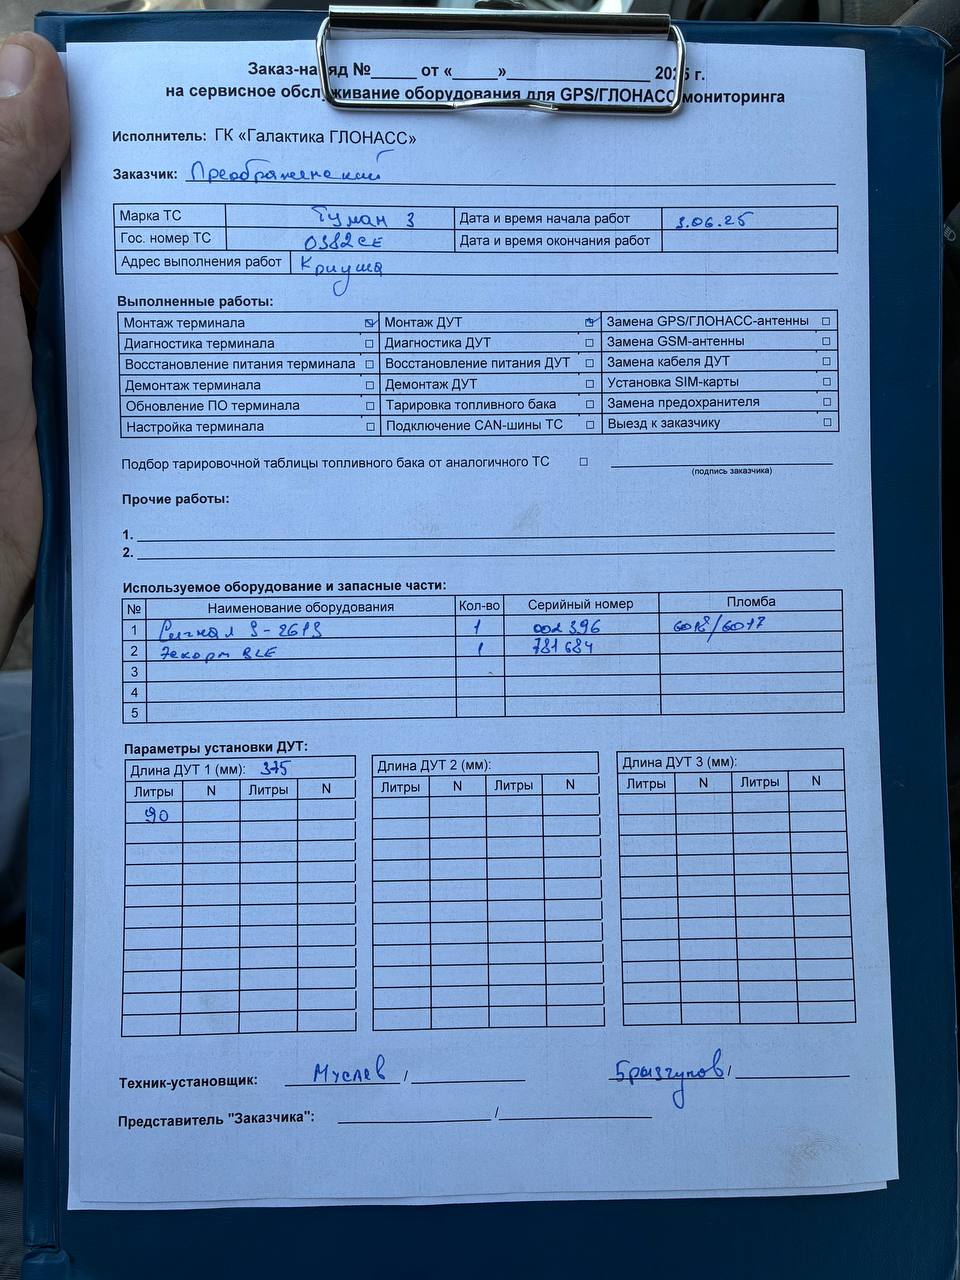 Заказ-наряд №_____ от «_____»_______________ 2025 г.
на сервисное обслуживание оборудования для GPS/ГЛОНАСС мониторинга
Исполнитель: ГК «Галактика ГЛОНАСС»
Заказчик: Преображенский
Марка ТС Туман 3 Дата и время начала работ 3.06.25
Гос. номер ТС 0382СЕ Дата и время окончания работ
Адрес выполнения работ Криуша
Выполненные работы:
Монтаж терминала ☑ Монтаж ДУТ ☑ Замена GPS/ГЛОНАСС-антенны ☐
Диагностика терминала ☐ Диагностика ДУТ ☐ Замена GSM-антенны ☐
Восстановление питания терминала ☐ Восстановление питания ДУТ ☐ Замена кабеля ДУТ ☐
Демонтаж терминала ☐ Демонтаж ДУТ ☐ Установка SIM-карты ☐
Обновление ПО терминала ☐ Тарировка топливного бака ☐ Замена предохранителя ☐
Настройка терминала ☐ Подключение CAN-шины ТС ☐ Выезд к заказчику ☐
Подбор тарировочной таблицы топливного бака от аналогичного ТС ☐
(подпись заказчика)
Прочие работы:
1.
2.
Используемое оборудование и запасные части:
№ Наименование оборудования Кол-во Серийный номер Пломба
1 Сигнал S-2613 1 002396 6018/6017
2 Эскорт BLE 1 781684
3
4
5
Параметры установки ДУТ:
Длина ДУТ 1 (мм): 375 Длина ДУТ 2 (мм): Длина ДУТ 3 (мм):
Литры N Литры N Литры N Литры N Литры N Литры N
90
Техник-установщик: Муслев / Брызгунов /
Представитель "Заказчика": /